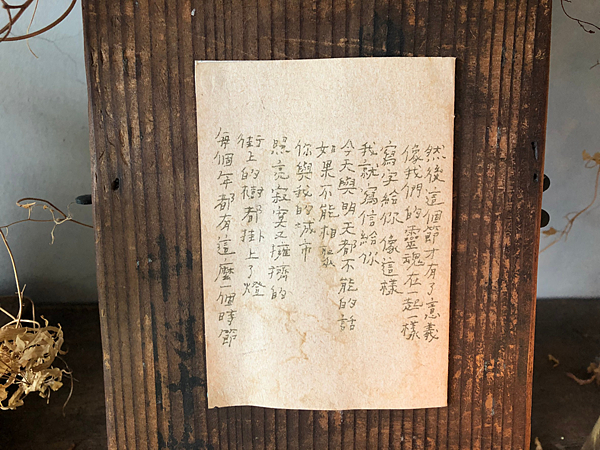 每個年都有這麼一個時節
街上的樹都掛上了燈
照亮寂寞又擁擠的
你與我的城市
如果不能相聚
今天與明天都不能的話
我就寫信給你
寫字給你 像這樣
像我們的靈魂在一起一樣
然後這個節才有了意義